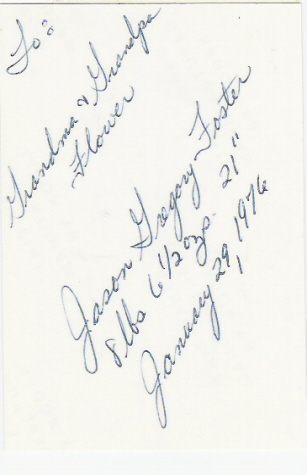 To:
Grandma & Grandpa
Flower
Jason Gregory Foster
8 lbs 6 1/2 ozs. 21"
January 29, 1976